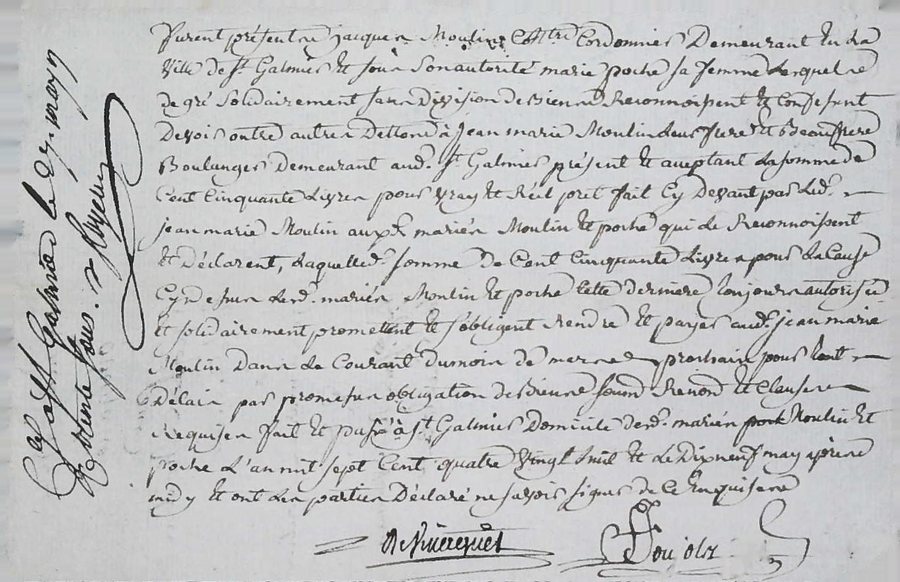 Furent présents jacques Moulin Mtre Cordonnier Demeurant En la
Ville de St. Galmier Et sous Son autorité marie poche sa femme Lesquels
de gré Solidairement sans Division de Biens Reconnoissent Et Confessent
Devoir outre autres Dettes à Jean marie Moulin Leur frere Et Beaufrere
Boulanger Demeurant aud. St. Galmier présent Et aceptant La Somme de
Cent Cinquante Livres pour Vray Et Réel pret fait Cy Devant par Led.
jean marie Moulin auxd. mariés Moulin Et poche qui Le Reconnoissent
Et Déclarent, Laquelle d. Somme De Cent Cinquante Livres pour La Cause
Cy Dessus Lesd. mariés Moulin Et poche Cette derniere toujours autorisée
et solidairement promettent Et s'obligent Rendre Et payer aud. jean marie
Moulin Dans Le Courant du mois de mars prochain pour tout
Délais par promesse obligation de Biens Renon Et Clauses
Requises fait Et passé à St Galmier Domicile desd. mariés Moulin Et
poche L'an mil sept Cent quatre Vingt huit Et Le Dix neuf may après
midy Et ont Les parties Déclaré ne savoir signer de Ce Enquises
Coignet
Poujols
St Galmier le 27 may
trente sous